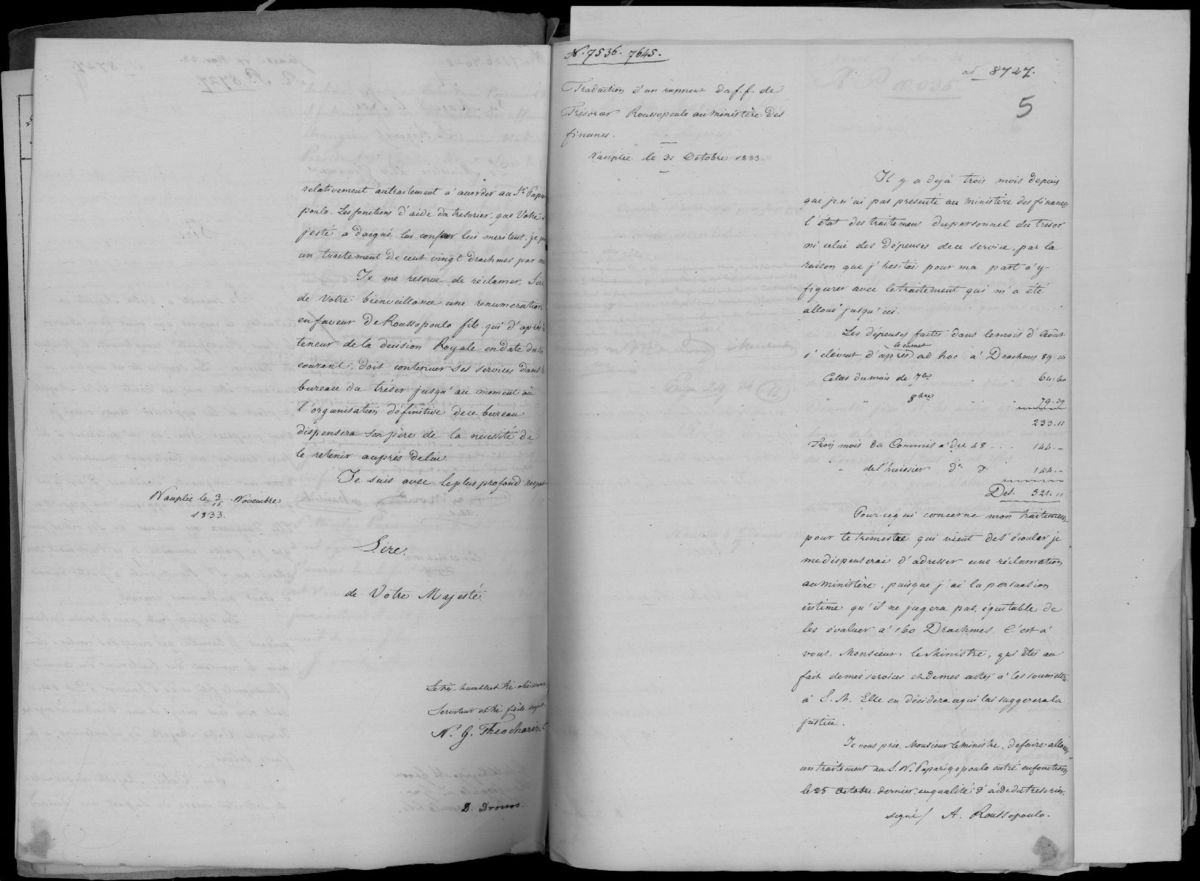 relativement au traitement à accorder au Sr Papar
poulo. Les fonctions d'aide du trésorier, que Votre
jesté a daigné lui conférer lui méritent, je
un traitement de cent vingt drachmes par
Je me reserve de réclamer, Sire
de Votre bienveillance une renumeration
en faveur de Roussopoulo fils qui d'après
teneur de la décision Royale en date du
courant, doit continuer ses services dans
bureau du trésor jusqu'au moment où
l'organisation définitive de ce bureau
dispensera son père de la nécessité de
le retenir auprès de lui.
Je suis avec le plus profond respect
Nauplie le 3/15 Novembre
1833.
Sire.
de Votre Majesté
Le très humble et très obéissant
Serviteur et très fidèle sujet
N. G. Theocharis
D. Drossos
N. 7536. 7645.
ad 8727.
5
Traduction d'un rapport du f.f. de
Trésorier Roussopoulo au ministère des
finances.
Nauplie le 31 Octobre 1833.
Il y a déjà trois mois depuis
que je n'ai pas présenté au Ministère des finances
l'état des traitemens du personnel du trésor
ni celui des dépenses de ce service, par la
raison que j'hesitai pour ma part d'y
figurer avec le traitement qui m'a été
alloué jusqu'ici.
Les dépenses faites dans le mois d'Août
s'élèvent d'après ad hoc à Drachmes 89.
Celles du mois de 7bre " 64.60
" " 8bre " 79.
233.11
Trois mois du Commis à dr. 48 . . 144. -
" de l'huissier do " 144. -
Det 521. 11
Pour ce qui concerne mon traitement
pour le trimestre qui vient de s'écouler je
me dispenserai d'adresser une réclamation
au ministère, puisque j'ai la persuasion
intime qu'il ne jugera pas équitable de
les évaluer à 160 Drachmes. C'est à
vous, Monsieur le Ministre, qui êtes au
fait de mes services et de mes actes à les soumettre
à S. M. Elle en décidera ce qui lui suggerera la
justice.
Je vous prie, Monsieur le ministre, de faire allouer
un traitement au S. N. Paparigopoulo entré en fonctions
le 25 Octobre dernier, en qualité d'aide du trésorier.
signé / A. Roussopoulo.